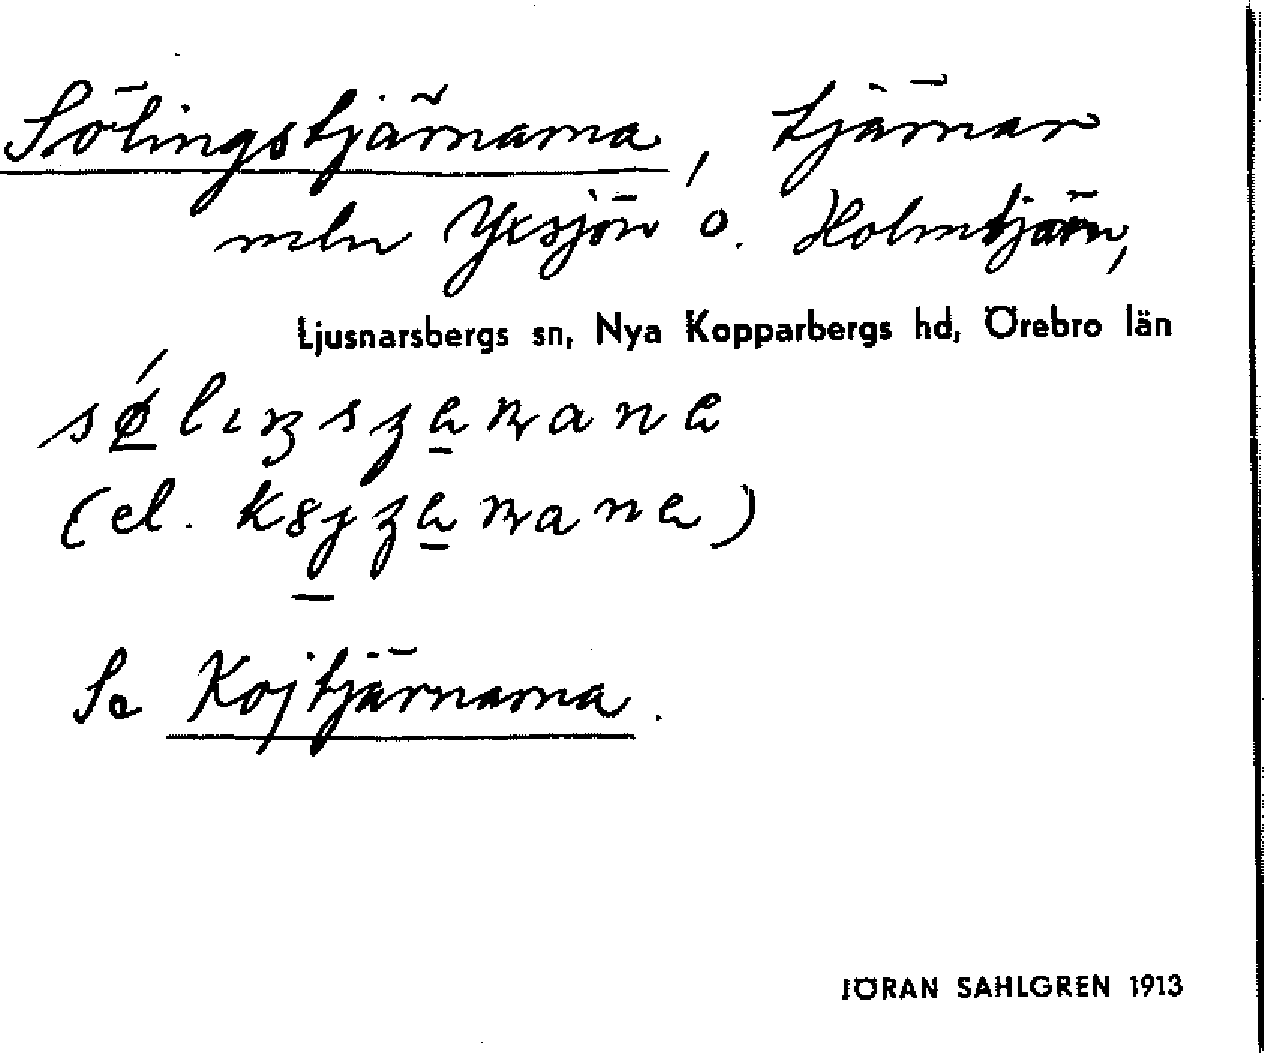 Sölingstjärnarna, tjärnar
mln Yxsjön o. Holmtjärn,
Ljusnarsbergs sn, Nya Kopparbergs hd, Örebro län
(el.
Se Kojtjärnarna.
JÖRAN SAHLGREN 1913